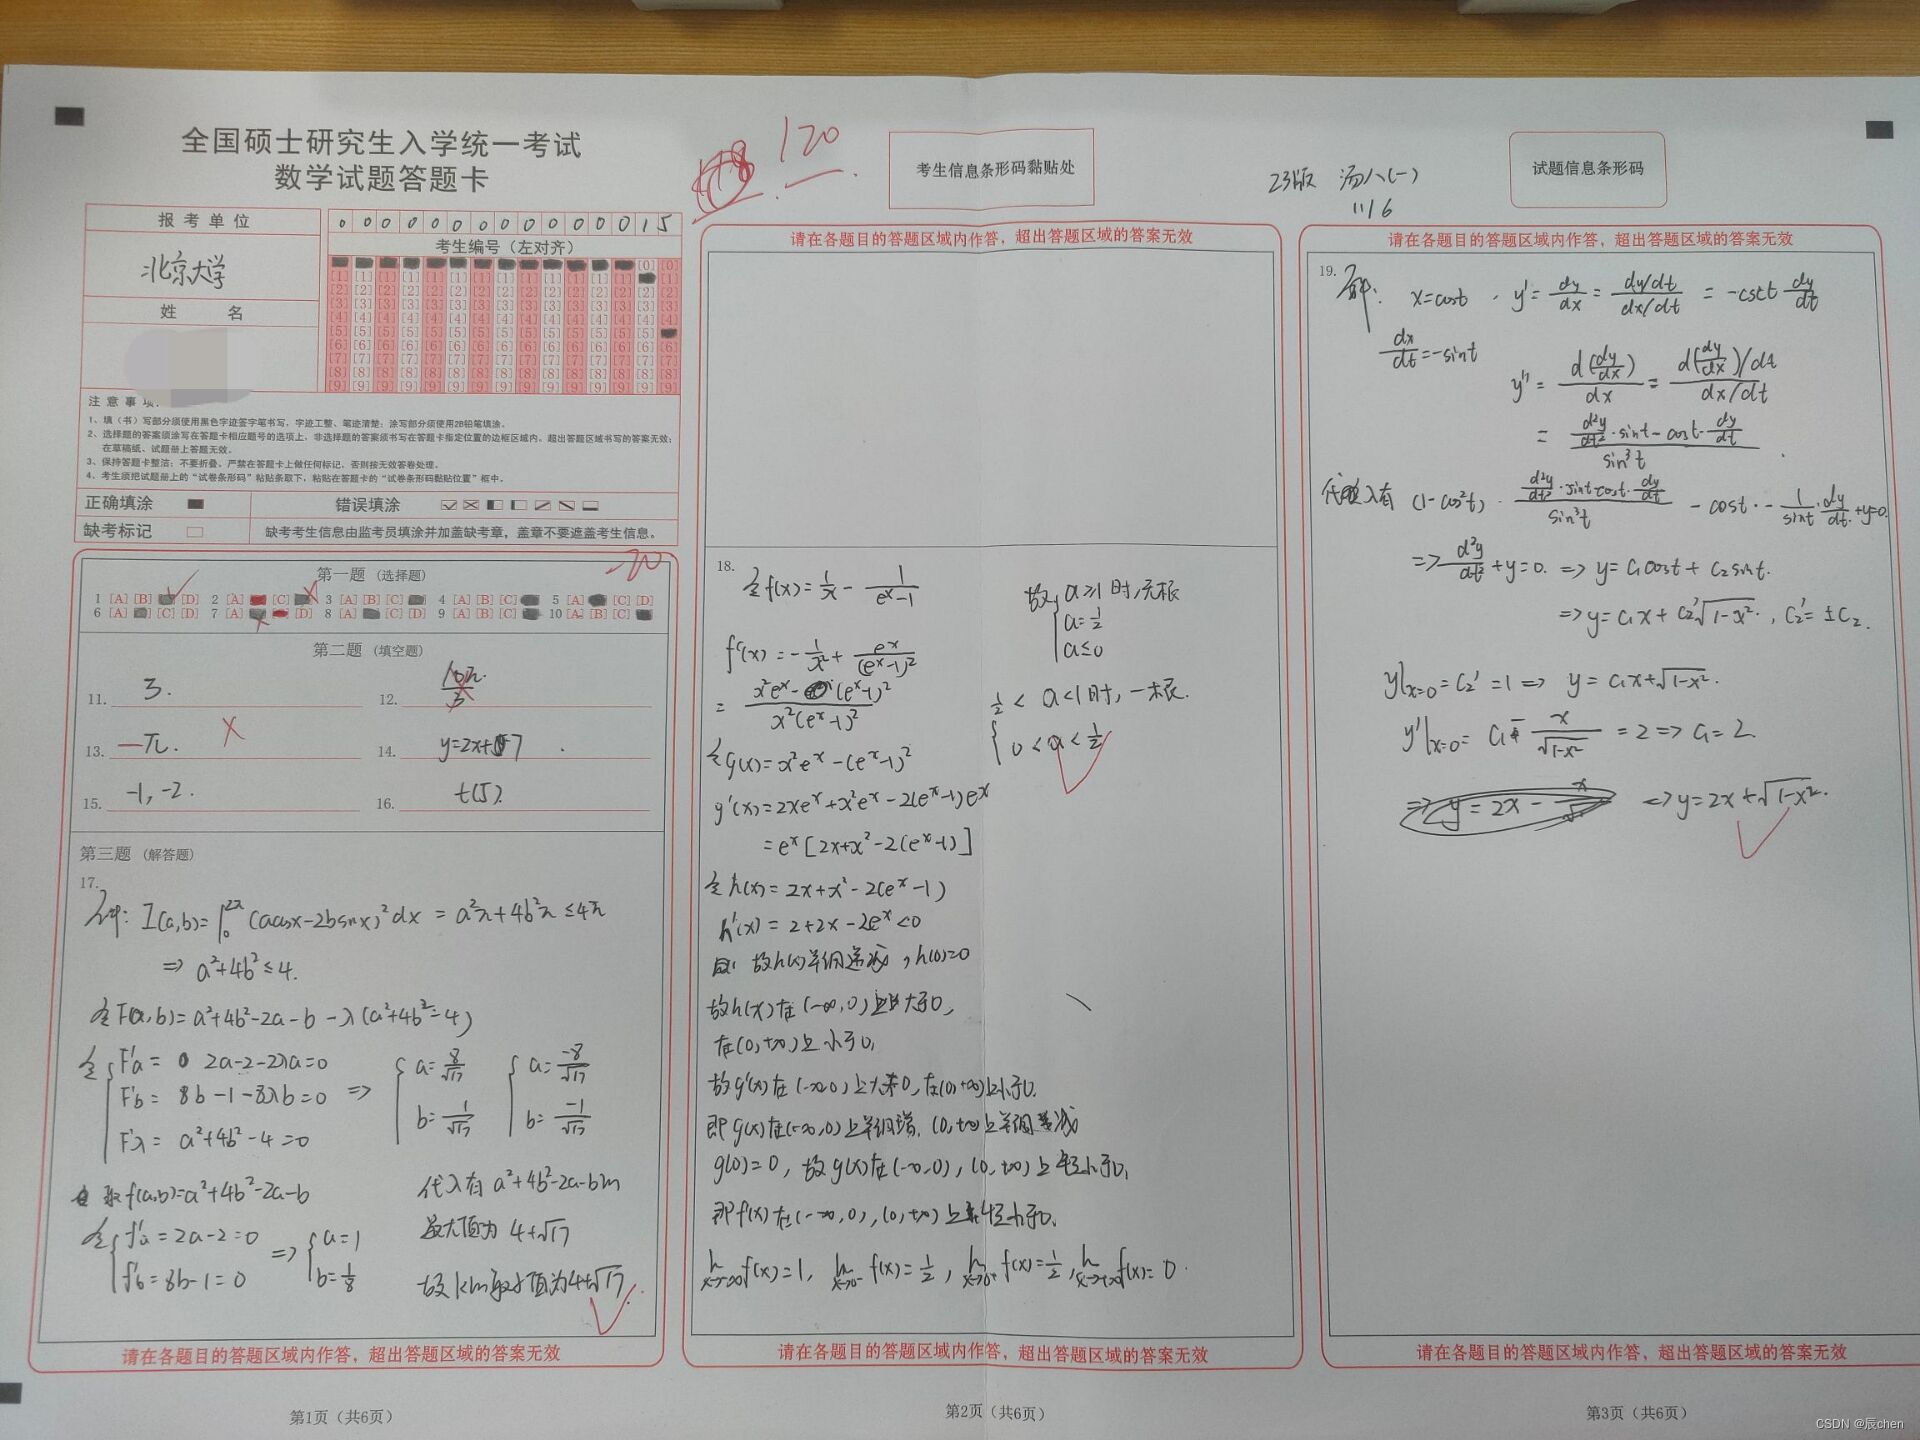 全国硕士研究生入学统一考试
数学试题答题卡
报考单位
北京大学
姓 名
0 0 0 0 0 0 0 0 0 0 0 0 0 1 5
考生编号（左对齐）
注意事项
1、填（书）写部分须使用黑色字迹签字笔书写，字迹工整、笔迹清楚；涂写部分须使用2B铅笔填涂。
2、选择题的答案须涂写在答题卡相应题号的选项上，非选择题的答案须书写在答题卡指定位置的边框区域内。超出答题区域书写的答案无效；
在草稿纸、试题册上答题无效。
3、保持答题卡整洁；不要折叠。严禁在答题卡上做任何标记，否则按无效答卷处理。
4、考生须把试题册上的“试卷条形码”粘贴条取下，粘贴在答题卡的“试卷条形码黏贴位置”框中。
正确填涂
错误填涂
缺考标记
缺考考生信息由监考员填涂并加盖缺考章，盖章不要遮盖考生信息。
-20
第一题（选择题）
第二题（填空题）
11. 3.
12. 10π/3
13. -π.
14. y=2x+7
15. -1, -2.
16. t(5).
第三题（解答题）
17.
解: I(a,b)=∫₀^2π (acosx-2bsinx)²dx = a²π+4b²π ≤4π
=> a²+4b²≤4.
令F(a,b)=a²+4b²-2a-b-λ(a²+4b²-4)
令 { F'a = 2a-2-2λa=0
F'b = 8b-1-8λb=0 =>
F'λ = a²+4b²-4=0
{ a=8/√17 b=1/√17 { a=-8/√17 b=-1/√17
取f(a,b)=a²+4b²-2a-b
令 { f'a=2a-2=0
f'b=8b-1=0 => { a=1 b=1/8
代入有 a²+4b²-2a-b
最大值为 4+√17
故k的最小值为4+√17.
请在各题目的答题区域内作答，超出答题区域的答案无效
第1页（共6页）
120
考生信息条形码黏贴处
请在各题目的答题区域内作答，超出答题区域的答案无效
18.
令f(x)=1/x - 1/(e^x-1)
f'(x)=-1/x²+e^x/(e^x-1)²
= (x²e^x-(e^x-1)²)/(x²(e^x-1)²)
令g(x)=x²e^x-(e^x-1)²
g'(x)=2xe^x+x²e^x-2(e^x-1)e^x
=e^x[2x+x²-2(e^x-1)]
令h(x)=2x+x²-2(e^x-1)
h'(x)=2+2x-2e^x<0
故h(x)单调递减, h(0)=0
故h(x)在(-∞,0)上大于0,
在(0,+∞)上小于0,
故g'(x)在(-∞,0)上大于0,在(0,+∞)上小于0.
即g(x)在(-∞,0)上单调增, (0,+∞)上单调减
g(0)=0, 故g(x)在(-∞,0), (0,+∞)上恒小于0,
即f'(x)在(-∞,0), (0,+∞)上恒小于0.
lim x→-∞ f(x)=1, lim x→0⁻ f(x)=1/2, lim x→0⁺ f(x)=1/2, lim x→+∞ f(x)=0.
故 { a≥1时,无根
a=1/2
a≤0
{ 1/2<a<1时, 一根.
0<a<1/2
请在各题目的答题区域内作答，超出答题区域的答案无效
第2页（共6页）
23版 汤八(一)
11/6
试题信息条形码
请在各题目的答题区域内作答，超出答题区域的答案无效
19.
解: x=cost, y'=dy/dx=(dy/dt)/(dx/dt)=-csct dy/dt
dx/dt=-sint
y''=d(dy/dx)/dx=(d(dy/dx)/dt)/(dx/dt)
=(d²y/dt²·sint-cost·dy/dt)/sin³t
代入有 (1-cos²t)·(d²y/dt²·sint-cost·dy/dt)/sin³t - cost·-1/sint·dy/dt+y=0.
=> d²y/dt²+y=0. => y=C₁cost+C₂sint.
=> y=C₁x+C₂'√(1-x²), C₂'=±C₂.
y|x=0=C₂'=1 => y=C₁x+√(1-x²).
y'|x=0=C₁-x/√(1-x²)=2 => C₁=2.
=> y=2x+√(1-x²).
请在各题目的答题区域内作答，超出答题区域的答案无效
第3页（共6页）
CSDN @辰chen